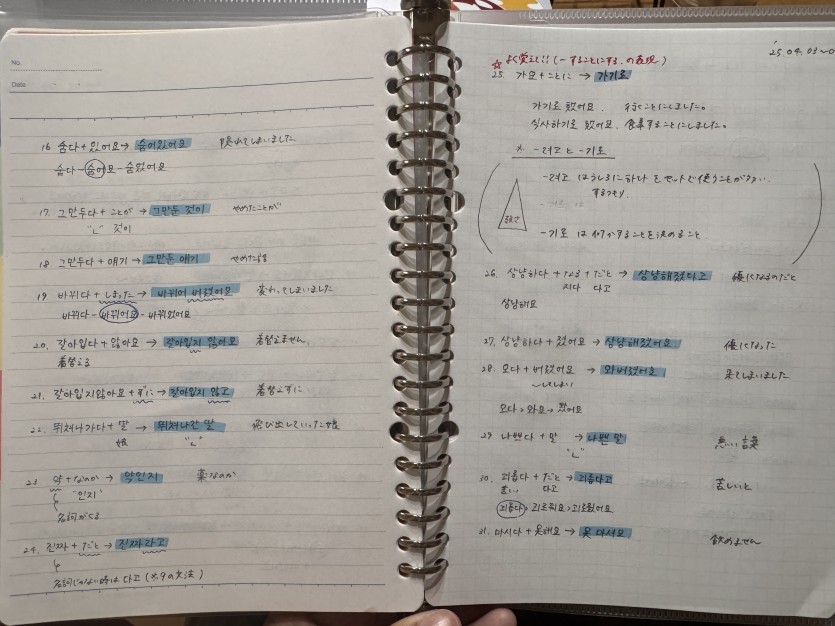 No.
Date
16 숨다 + 있어요 → 숨어있어요 隠れてしまいました
숨다 - 숨어요 - 숨었어요
17. 그만두다 + ことが → 그만둔 것이 やめたことが
"ㄴ" 것이
18. 그만두다 + 얘기 → 그만둔 얘기 やめた話
19 바뀌다 + しまった → 바뀌어 버렸어요 変わってしまいました
바뀌다 - 바뀌어요 - 바뀌었어요
20. 갈아입다 + 않아요 → 갈아입지 않아요 着替えません。
着替える
21. 갈아입지않아요 + ずに → 갈아입지 않고 着替えずに
22. 뛰쳐나가다 + 딸 → 뛰쳐나간 딸 飛び出していった娘
娘 "ㄴ"
23 약 + なのか → 약인지 薬なのか
"인지"
名詞がくる
24. 진짜 + だと → 진짜라고
名詞じゃない時は 다고 (※9の文法)
25.04.03~0
☆ よく覚えて!! (-することにする。の表現)
25. 가요 + ことに → 가기로
가기로 했어요. 行くことにしました。
식사하기로 했어요. 食事することにしました。
※ -려고 と -기로
-려고 はうしろに하다 をセットで使うことが多い.
するつもり
-기로 は 何かすることを決めること
26. 상냥하다 + なる + だと → 상냥해졌다고 優しくなるのだと
지다 다고
상냥해요
27. 상냥하다 + 졌어요 → 상냥해졌어요 優しくなった
28. 오다 + 버렸어요 → 와버렸어요 来てしまいました
~してしまい
오다 > 와요 > 왔어요
29 나쁘다 + 말 → 나쁜 말 悪い言葉
"ㄴ"
30. 괴롭다 + だと → 괴롭다고 苦しいと
苦しい 다고
괴롭다 > 괴로워요 > 괴로웠어요
31. 마시다 + 못해요 → 못 마셔요 飲めません